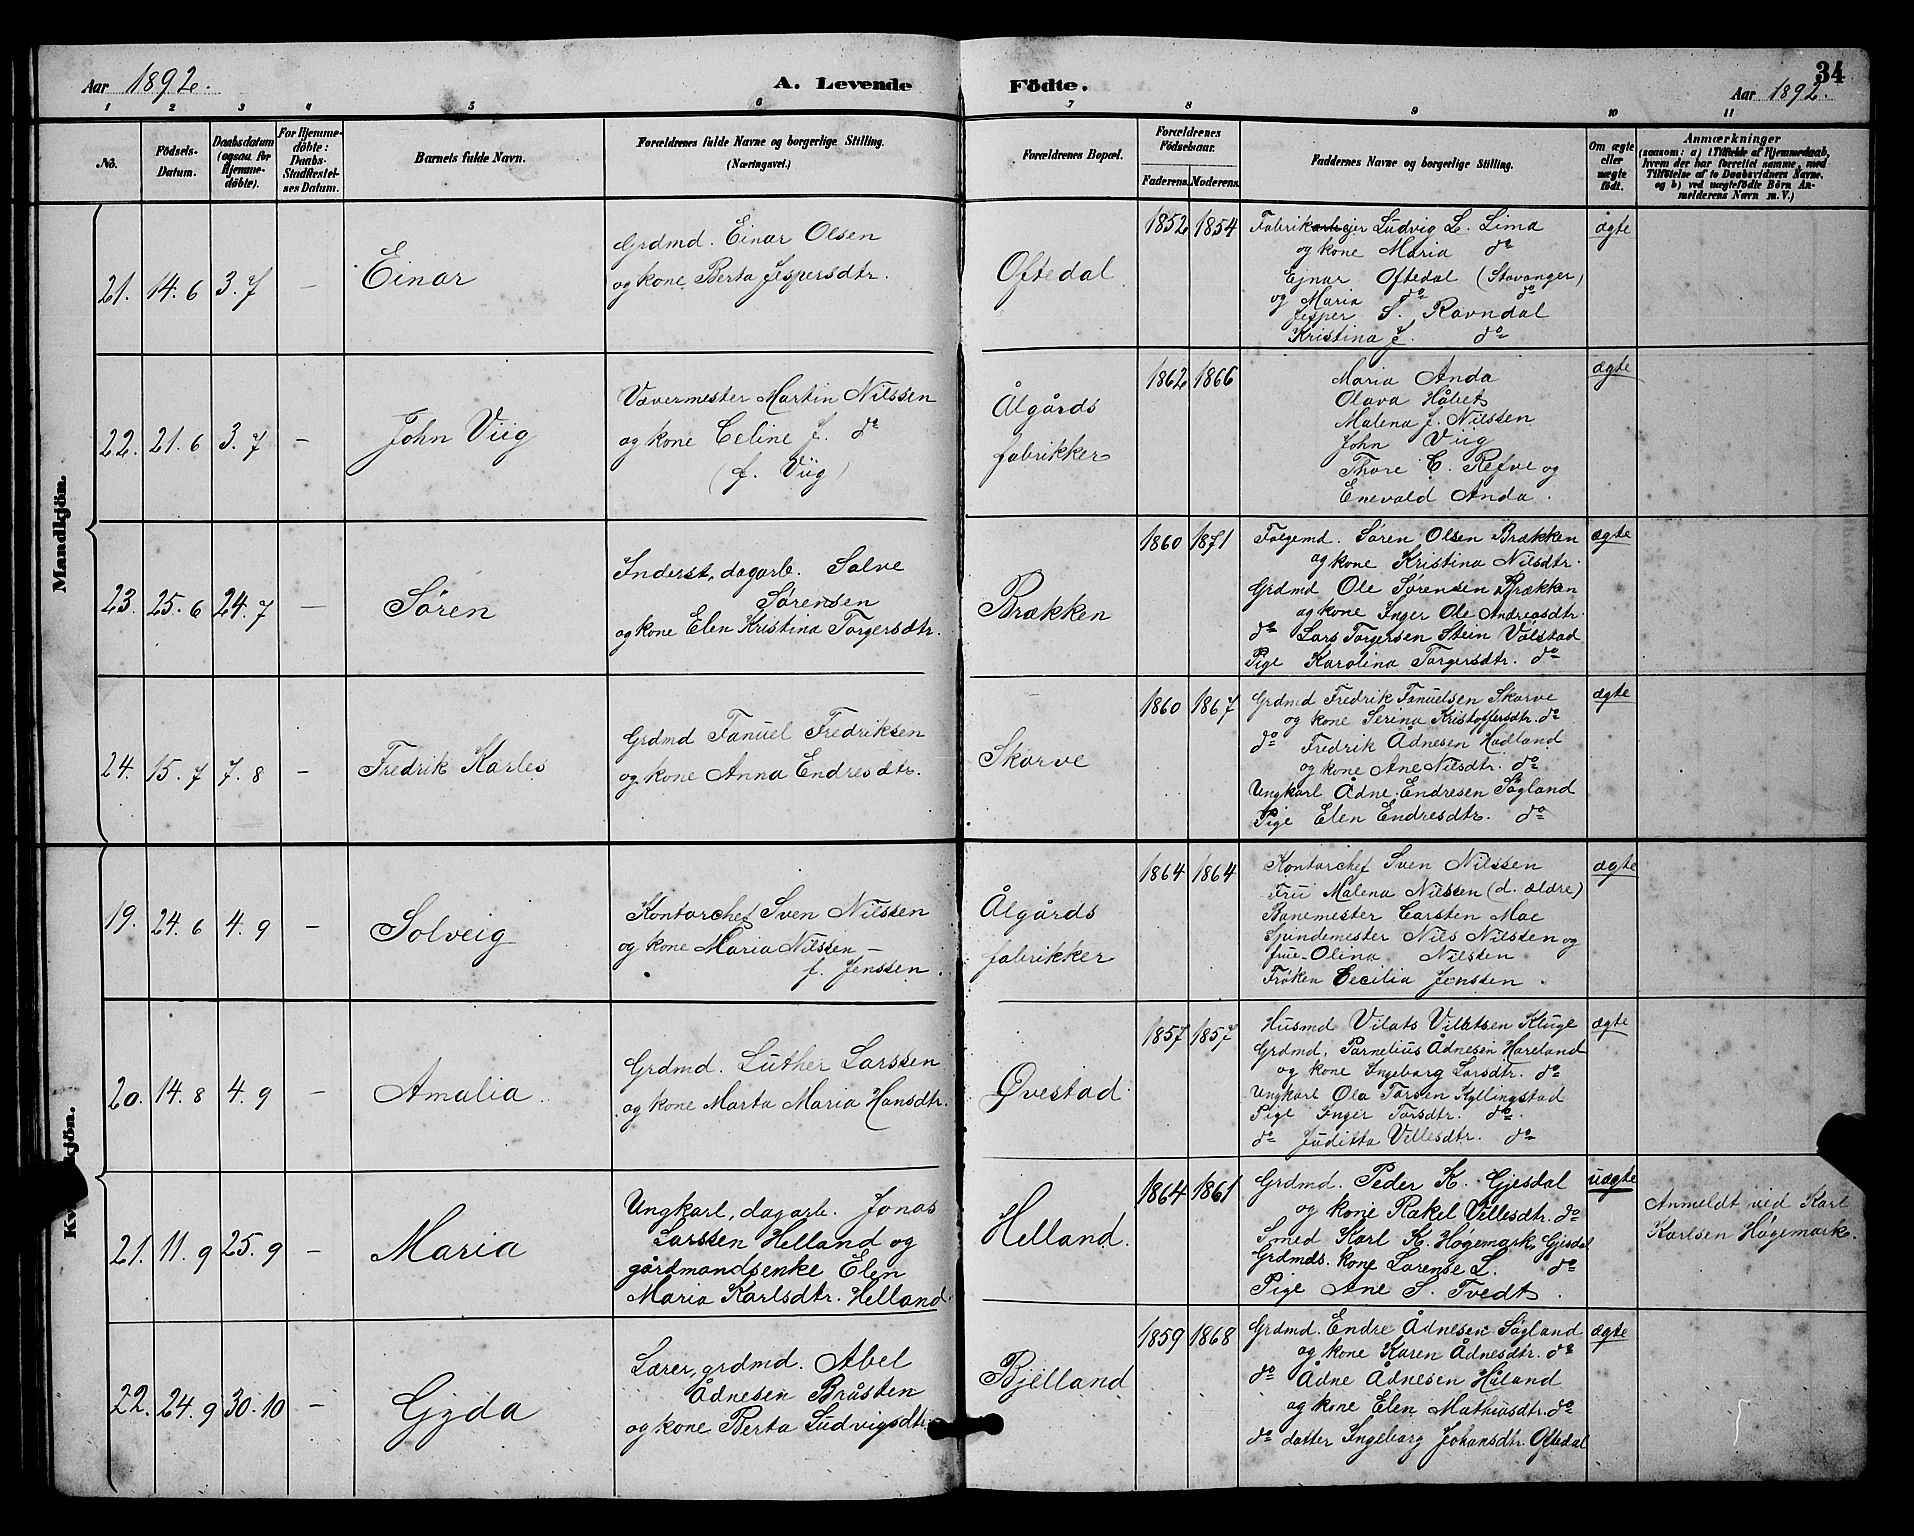 34
Aar 1892. A. Levende Födte. Aar 1892.
1 2 3 4 5 6 7 8 9 10 11
No. Födsels-Datum. Daabsdatum (ogsaa for Hjemme-döbte). For Hjemme-döbte: Daabs-Stadfæstel-ses Datum. Barnets fulde Navn. Forældrenes fulde Navne og borgerlige Stilling. (Næringsvei.) Forældrenes Bopæl. Forældrenes Födselsaar. Faderens. Moderens. Faddernes Navne og borgerlige Stilling. Om ægte eller uægte födt. Anmærkninger
(saasom: a) i Tilfælde af Hjemmedaab, hvem der har forrettet samme, med Tilföielse af to Daabsvidners Navne, og b) ved uægtefödte Börn An-melderens Navn m. V.)
Mandkjön.
21. 14.6 3.7 – Einar
Grdmd. Einar Olsen
og kone Berta Jespersdtr.
Oftedal
1852 1854
Fabrikejer Ludvig L. Lima
og kone Maria do
Ejnar Oftedal (Stavanger)
og Maria do do
Jesper S. Ravndal
Kristina J. do
ægte
22. 21.6 3.7 – John Viig
Vævermester Martin Nilssen
og kone Celine f. do
(f. Viig)
Ålgårds
fabrikker
1862 1866
Maria Anda
Olava Håbet
Malena f. Nilssen
John Viig
Thore C. Refve og
Enevald Anda.
ægte
23. 25.6 24.7 – Sören
Inderst, dagarb. Salve
Sørensen
og kone Elen Kristina Torgersdtr.
Brækken
1860 1871
Følgemd. Sören Olsen Brækken
og kone Kristina Nilsdtr.
Grdmd Ole Sørensen Brækken
og kone Inger Ole Andreasdtr.
do Lars Torgersen Stein Vølstad
Pige Karolina Torgersdtr. do
ægte
24. 15.7 7.8 – Fredrik Karles
Grdmd Fanuel Fredriksen
og kone Anna Endresdtr.
Skarve
1860 1867
Grdmd Fredrik Fanuelsen Skarve
og kone Serina Kristoffersdtr. do
do Fredrik Ådnesen Hadland
og kone Ane Nilsdtr. do
Ungkarl Ådne Endresen Søgland
Pige Elen Endresdtr. do
ægte
Kvindekjön.
19. 24.6 4.9 – Solveig
Kontorchef Sven Nilssen
og kone Maria Nilssen –
f. Jenssen.
Ålgårds
fabrikker
1864 1864
Kontorchef Sven Nilssen
Fru Malena Nilssen (d. ældre)
Banemester Carsten Moe
Spindemester Nils Nilssen og
frue Olina Nilsten
Frøken Cecilia Jenssen.
ægte
20. 14.8 4.9 – Amalia.
Grdmd. Luther Larssen
og kone Marta Maria Hansdtr.
Øvestad.
1857 1857
Husmd Vilats Villatsen Kluge
Grdmd. Parnelius Ådnesen Hareland
og kone Ingeborg Larsdtr. do
Ungkarl Ola Torsen Kyllingstad
Pige Inger Torsdtr. do
do Juditta Villesdtr. do
ægte
21. 11.9 25.9 – Maria
Ungkarl, dagarb. Jonas
Larssen Helland og
gårdmandsenke Elen
Maria Karlsdtr. Helland.
Helland.
1864 1861
Grdmd. Peder K. Gjesdal
og kone Rakel Villesdtr. do
Smed Karl K. Høgemark, Gjesdal
Grdmds. kone Lorense L. do
Pige Ane S. Tvedt.
uægte
Anmeldt ved Karl
Karlsen Høgemark.
22. 24.9 30.10 – Gyda
Lærer, grdmd. Abel
Ådnesen Bråsten
og kone Berta Ludvigsdtr.
Bjelland
1859 1868
Grdmd. Endre Ådnesen Søgland
og kone Karen Ådnesdtr. do
do Ådne Ådnesen Håland
og kone Elen Mathiasdtr. do
do datter Ingeborg Johansdtr. Oftedal
ægte